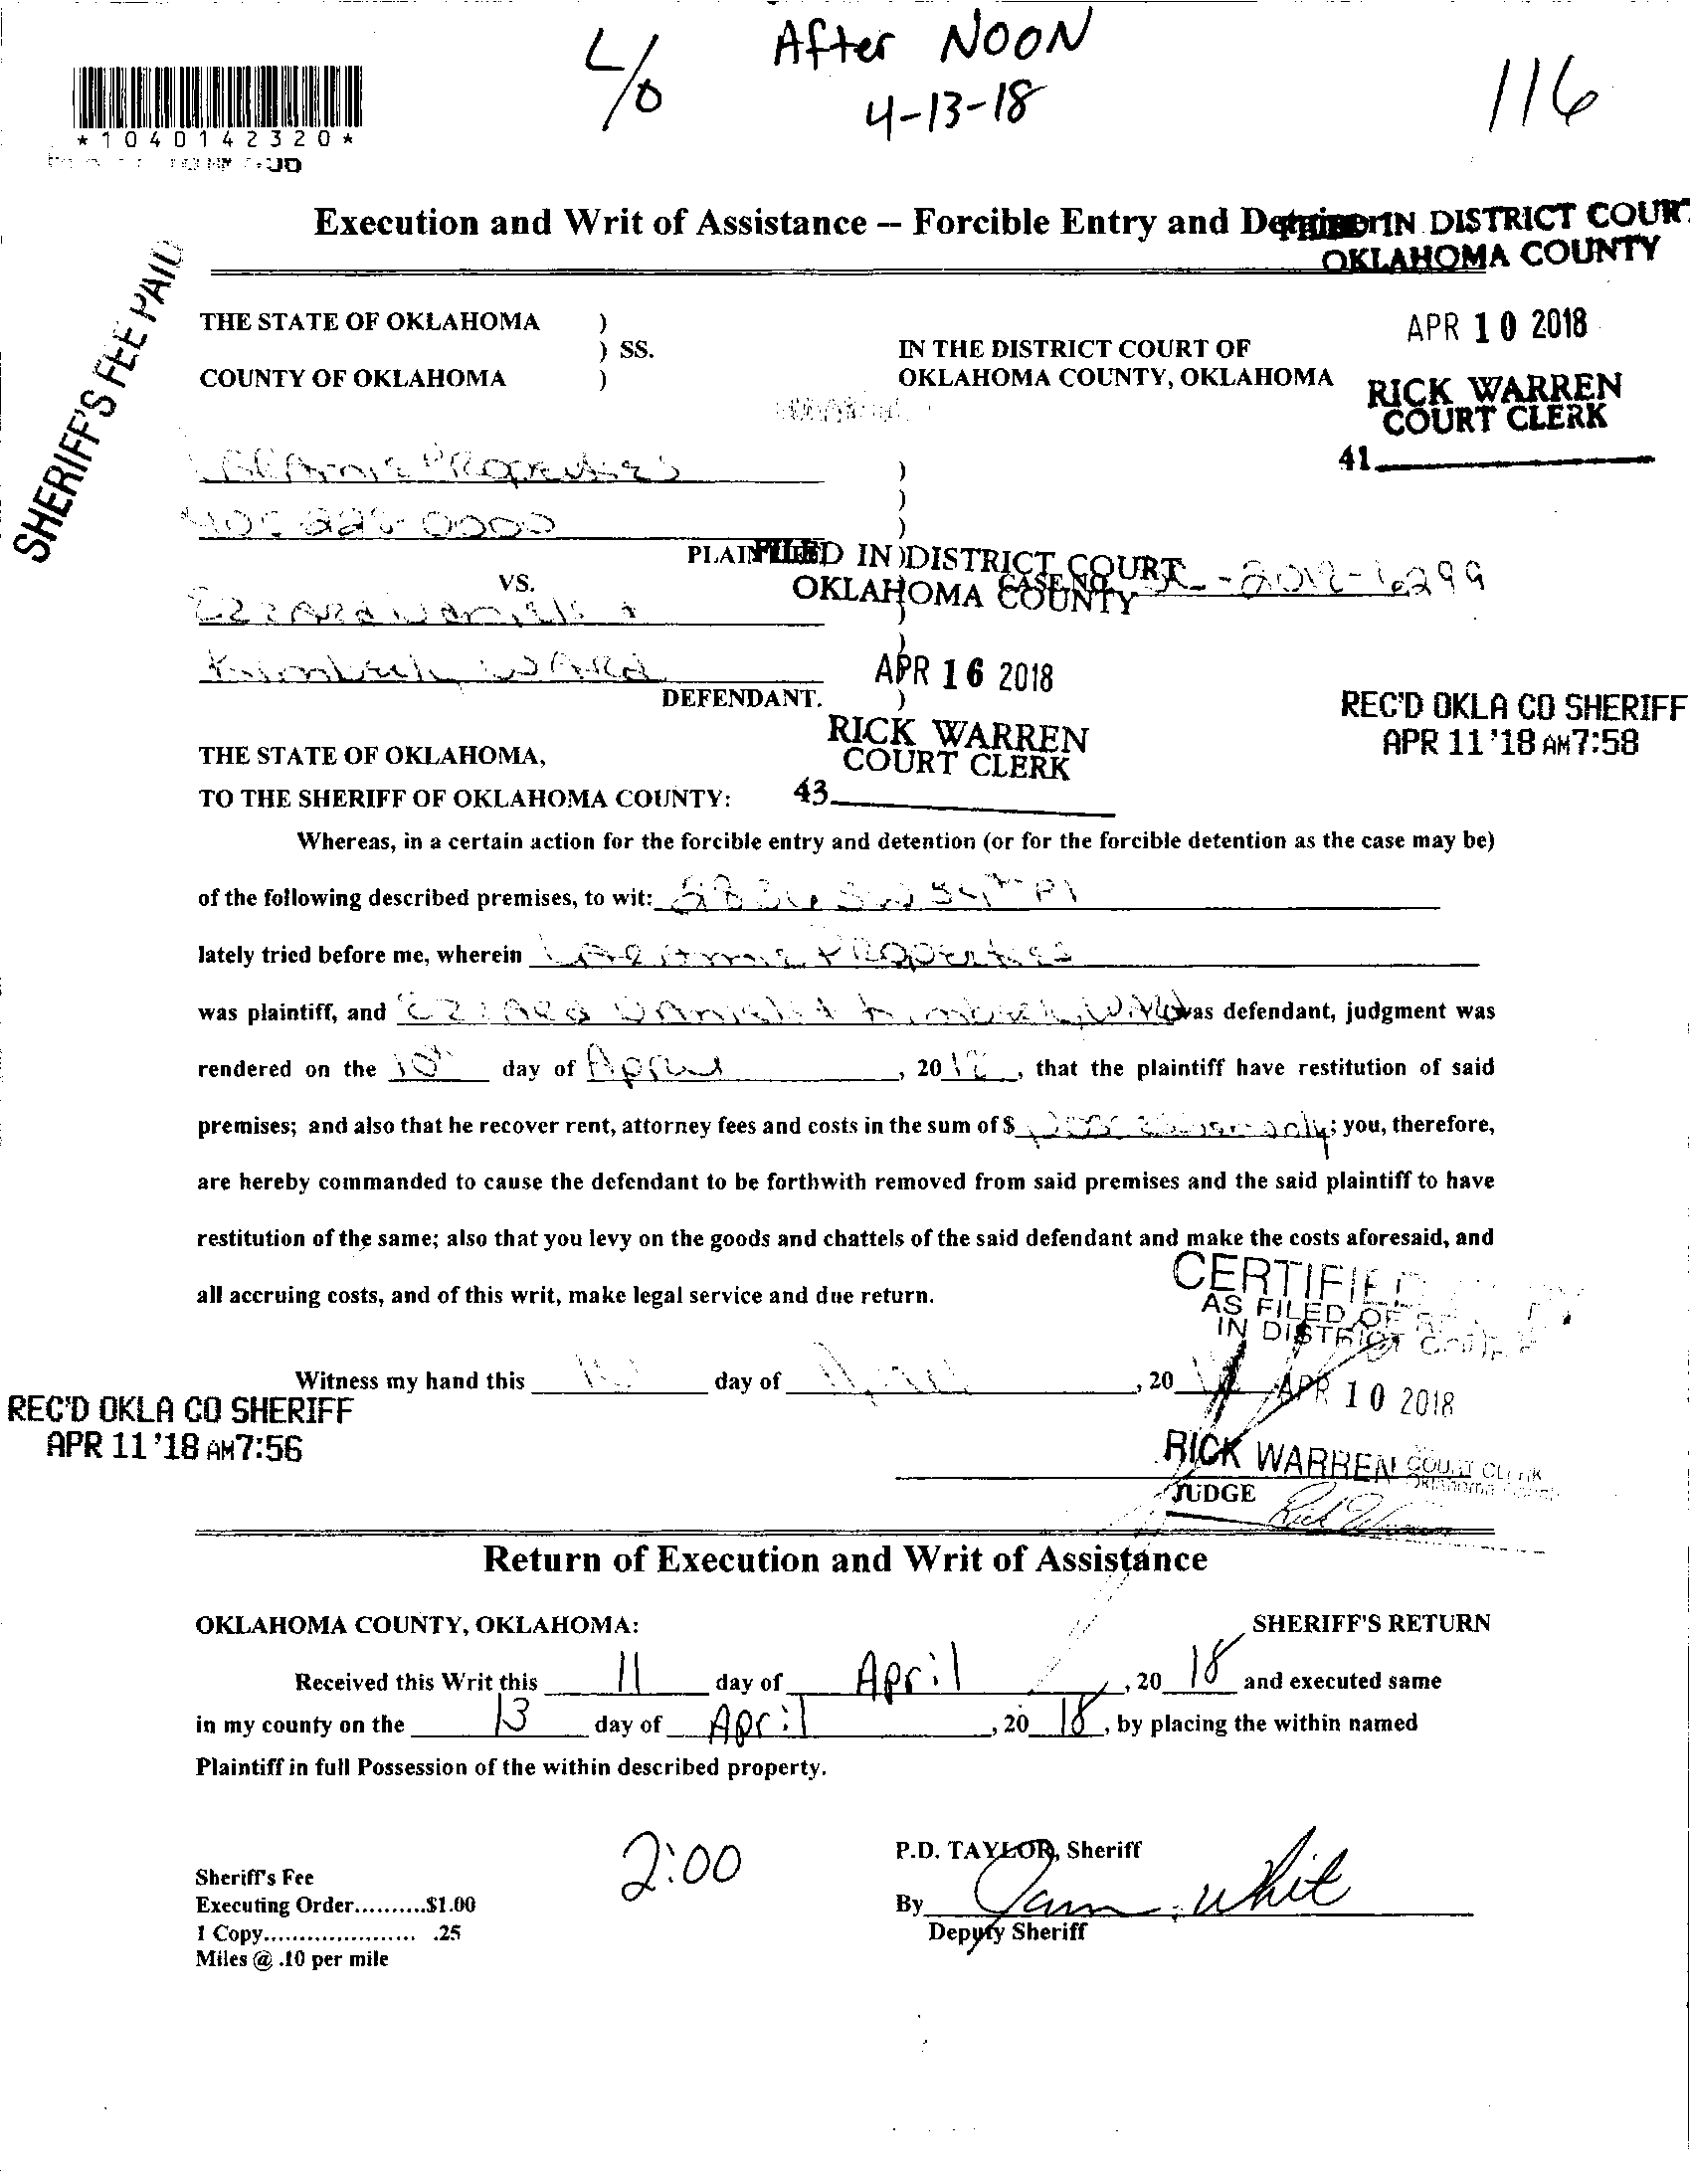 L/O
After NOON
4-13-18
116
*1040142320*
SHERIFF'S FEE PAID
Execution and Writ of Assistance – Forcible Entry and Detainer
IN DISTRICT COURT
OKLAHOMA COUNTY
APR 10 2018
RICK WARREN
COURT CLERK
41
THE STATE OF OKLAHOMA )
) SS.
COUNTY OF OKLAHOMA )
IN THE DISTRICT COURT OF
OKLAHOMA COUNTY, OKLAHOMA
Properties
PLAINTIFF
VS.
CASE NO.
FILED IN DISTRICT COURT
OKLAHOMA COUNTY
APR 16 2018
RICK WARREN
COURT CLERK
43
Ward
DEFENDANT.
REC'D OKLA CO SHERIFF
APR 11 '18 AM 7:58
THE STATE OF OKLAHOMA,
TO THE SHERIFF OF OKLAHOMA COUNTY:
Whereas, in a certain action for the forcible entry and detention (or for the forcible detention as the case may be)
of the following described premises, to wit:
lately tried before me, wherein Properties
was plaintiff, and was defendant, judgment was
rendered on the 10th day of April, 2018, that the plaintiff have restitution of said
premises; and also that he recover rent, attorney fees and costs in the sum of $ only; you, therefore,
are hereby commanded to cause the defendant to be forthwith removed from said premises and the said plaintiff to have
restitution of the same; also that you levy on the goods and chattels of the said defendant and make the costs aforesaid, and
all accruing costs, and of this writ, make legal service and due return.
CERTIFIED
AS FILED OF
IN DISTRICT
Witness my hand this 10 day of April, 20
APR 10 2018
REC'D OKLA CO SHERIFF
APR 11 '18 AM 7:56
RICK WARREN COURT CLERK
JUDGE
Return of Execution and Writ of Assistance
OKLAHOMA COUNTY, OKLAHOMA: SHERIFF'S RETURN
Received this Writ this 11 day of April, 2018 and executed same
in my county on the 13 day of April, 2018, by placing the within named
Plaintiff in full Possession of the within described property.
2:00
P.D. TAYLOR, Sheriff
Sheriff's Fee
Executing Order..........$1.00
1 Copy..................... .25
Miles @ .10 per mile
By
Deputy Sheriff